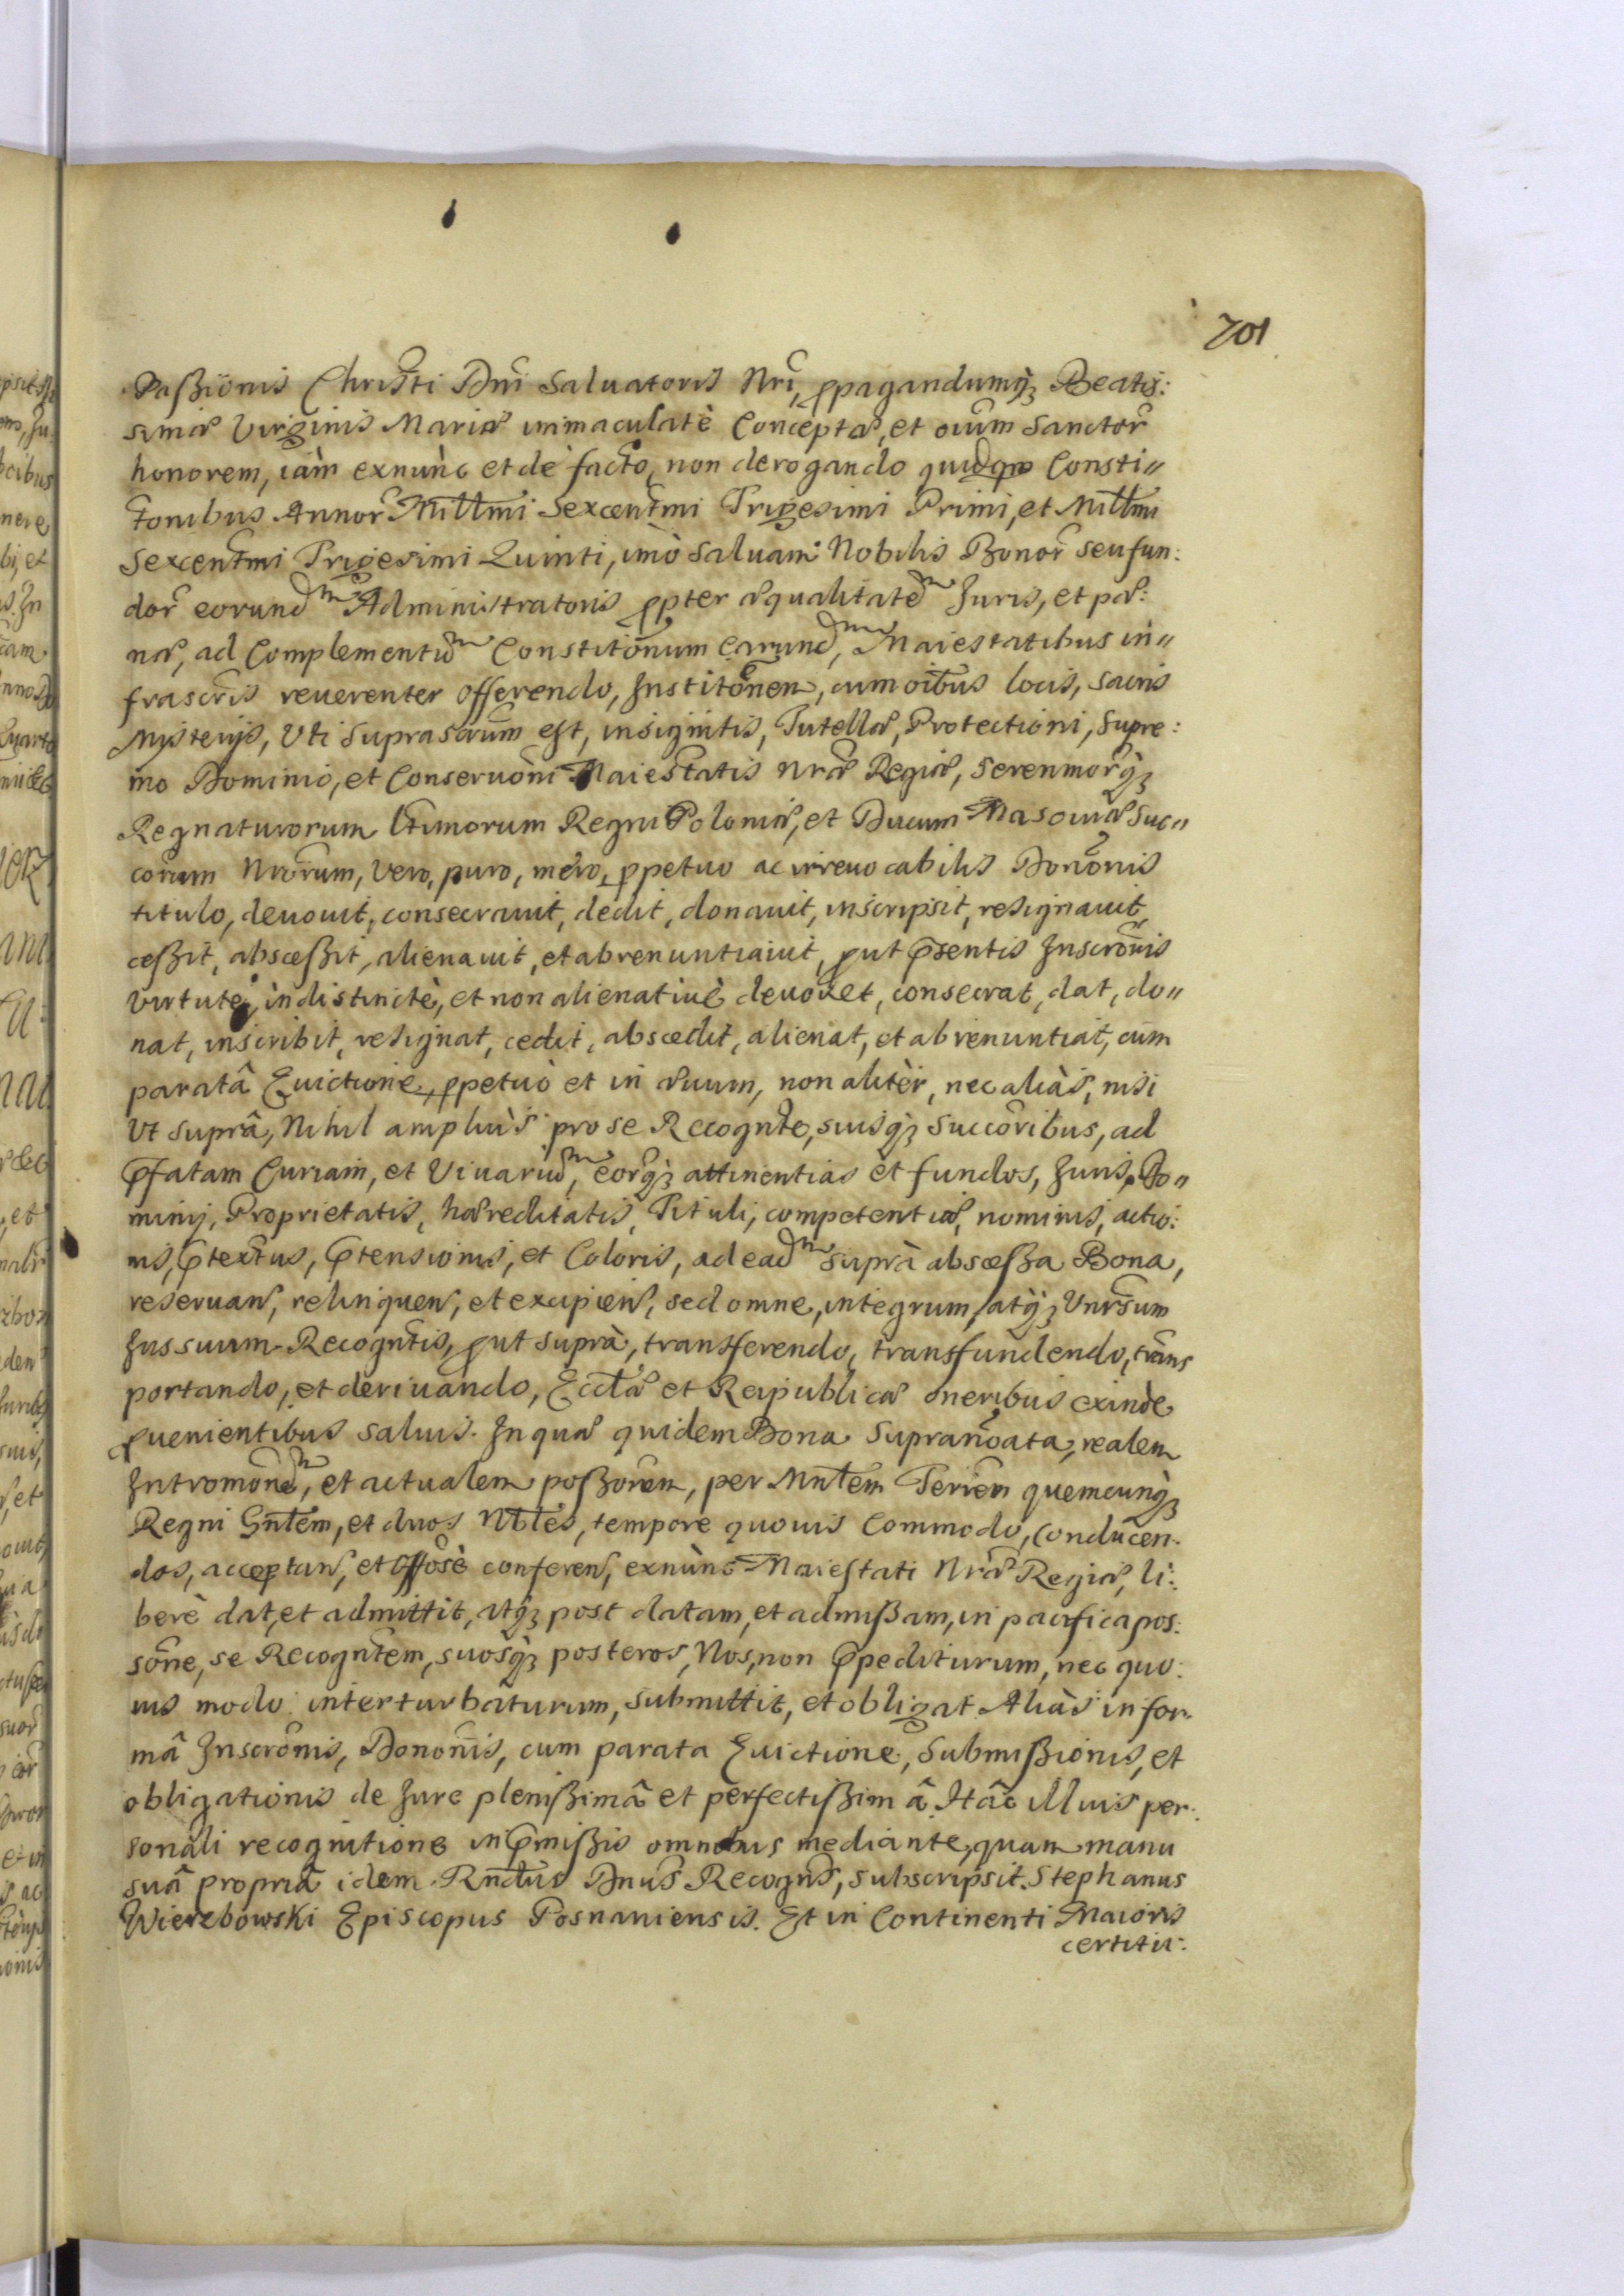 701
Passionis Christi Dni Saluatoris Nri, ppagandumq3 Beatis:
simæ Virginis Mariæ immaculatè Conceptæ, et oium Sanctor
honorem, iàm exnùnc et dè facto, non derogando quidqm Consti〃
tonibus Annor Millmi Sexcentmi Trigesimi Primi, et Millmi
Sexcentmi Trigesimi Quinti, imò Saluam Nobilis Bonor seu fun:
dor eorundem Administratoris ppter æqualitatem Juris, et pæ:
næ, ad Complementum Constitonum Earundem, Maiestatibus in〃
frascris reuerenter offerendo, Institonem, cum oibus locis, sacris
Mysterijs, Vti Suprascrium est, insignitis, Tutellæ, Protectioni, Supre:
mo Dominio, et Conseruoni Maiestatis Nræ Regiæ, Serenmorq3
Regnaturorum ltimorum Regni Poloniæ, et Ducum Masouiæ Suc〃
corum Nrorum, vero, puro, mero, ppetuo ac irreuocabilis Dononis
titulo, deuouit, consecrauit, dedit, donauit, inscripsit, resignauit,
cessit, abscessit, alienauit, et abrenuntiauit, put psentis Inscronis
virtute, indistinctè, et non alienatiuè deuouet, consecrat, dat, do〃
nat, inscribit, resignat, cedit, abscedit, alienat, et abrenuntiat, cum
paratâ Euictione, ppetuò et in æuum, non alitèr, nec aliàs, nisi
Vt suprâ, Nihil ampliùs pro se Recognte, suisq3 Succoribus, ad
pfatam Curiam, et Viuarium, eorq3 attinentias et fundos, Juris, Do〃
minij, Proprietatis, hæreditatis, Tituli, competentiæ, nominis, actio:
nis, ptextus, ptensionis, et Coloris, ad eadem suprà abscessa Bona,
reseruans, relinquens, et excipiens, sed omne, integrum, atq3 Vnrsum
Jus suum Recogntis, put suprà, transferendo, transfundendo, trans
portando, et deriuando, Ecclæ et Reipublicæ oneribus exindè
puenientibus saluis. In quæ quidem Bona Supranoata, realem
Intromonem, et actualem possorem, per Mnltem Terrem quemcunq3
Regni Gnlem, et duos Nbles, tempore quouis Commodo, Conducen:
dos, acceptans, et offosè conferens, exnùnc Maiestati Nræ Regiæ, li:
berè dat, et admittit, atq3 post datam, et admissam, in pacifica pos:
sone, se Recogntem, suosq3 posteros, Nos, non ppediturum, nec quo:
uis modo interturbaturum, submittit, et obligat. Aliàs in for:
mâ Inscronis, Dononis, cum parata Euictione, Submissionis, et
obligationis de Jure plenissimâ et perfectissimâ. Hâc illius per:
sonali recognitione in pmissis omnibus mediante, quam manu
suâ propriâ idem Rndus Dnus Recogns, subscripsit. Stephanus
Wierzbowski Episcopus Posnaniensis. Et in Continenti Maioris
certitu: